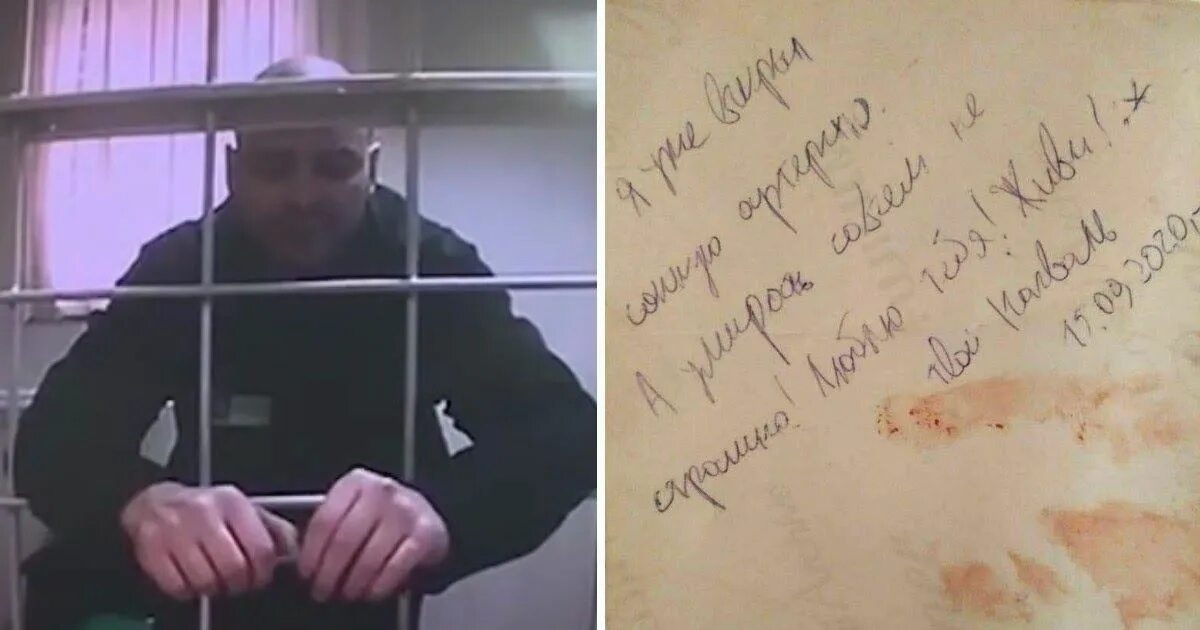 Я уже вскрыл
сонную артерию.
А умирать совсем не
страшно! Люблю тебя! Живи! :*
твой Коваль
15.09.2020г